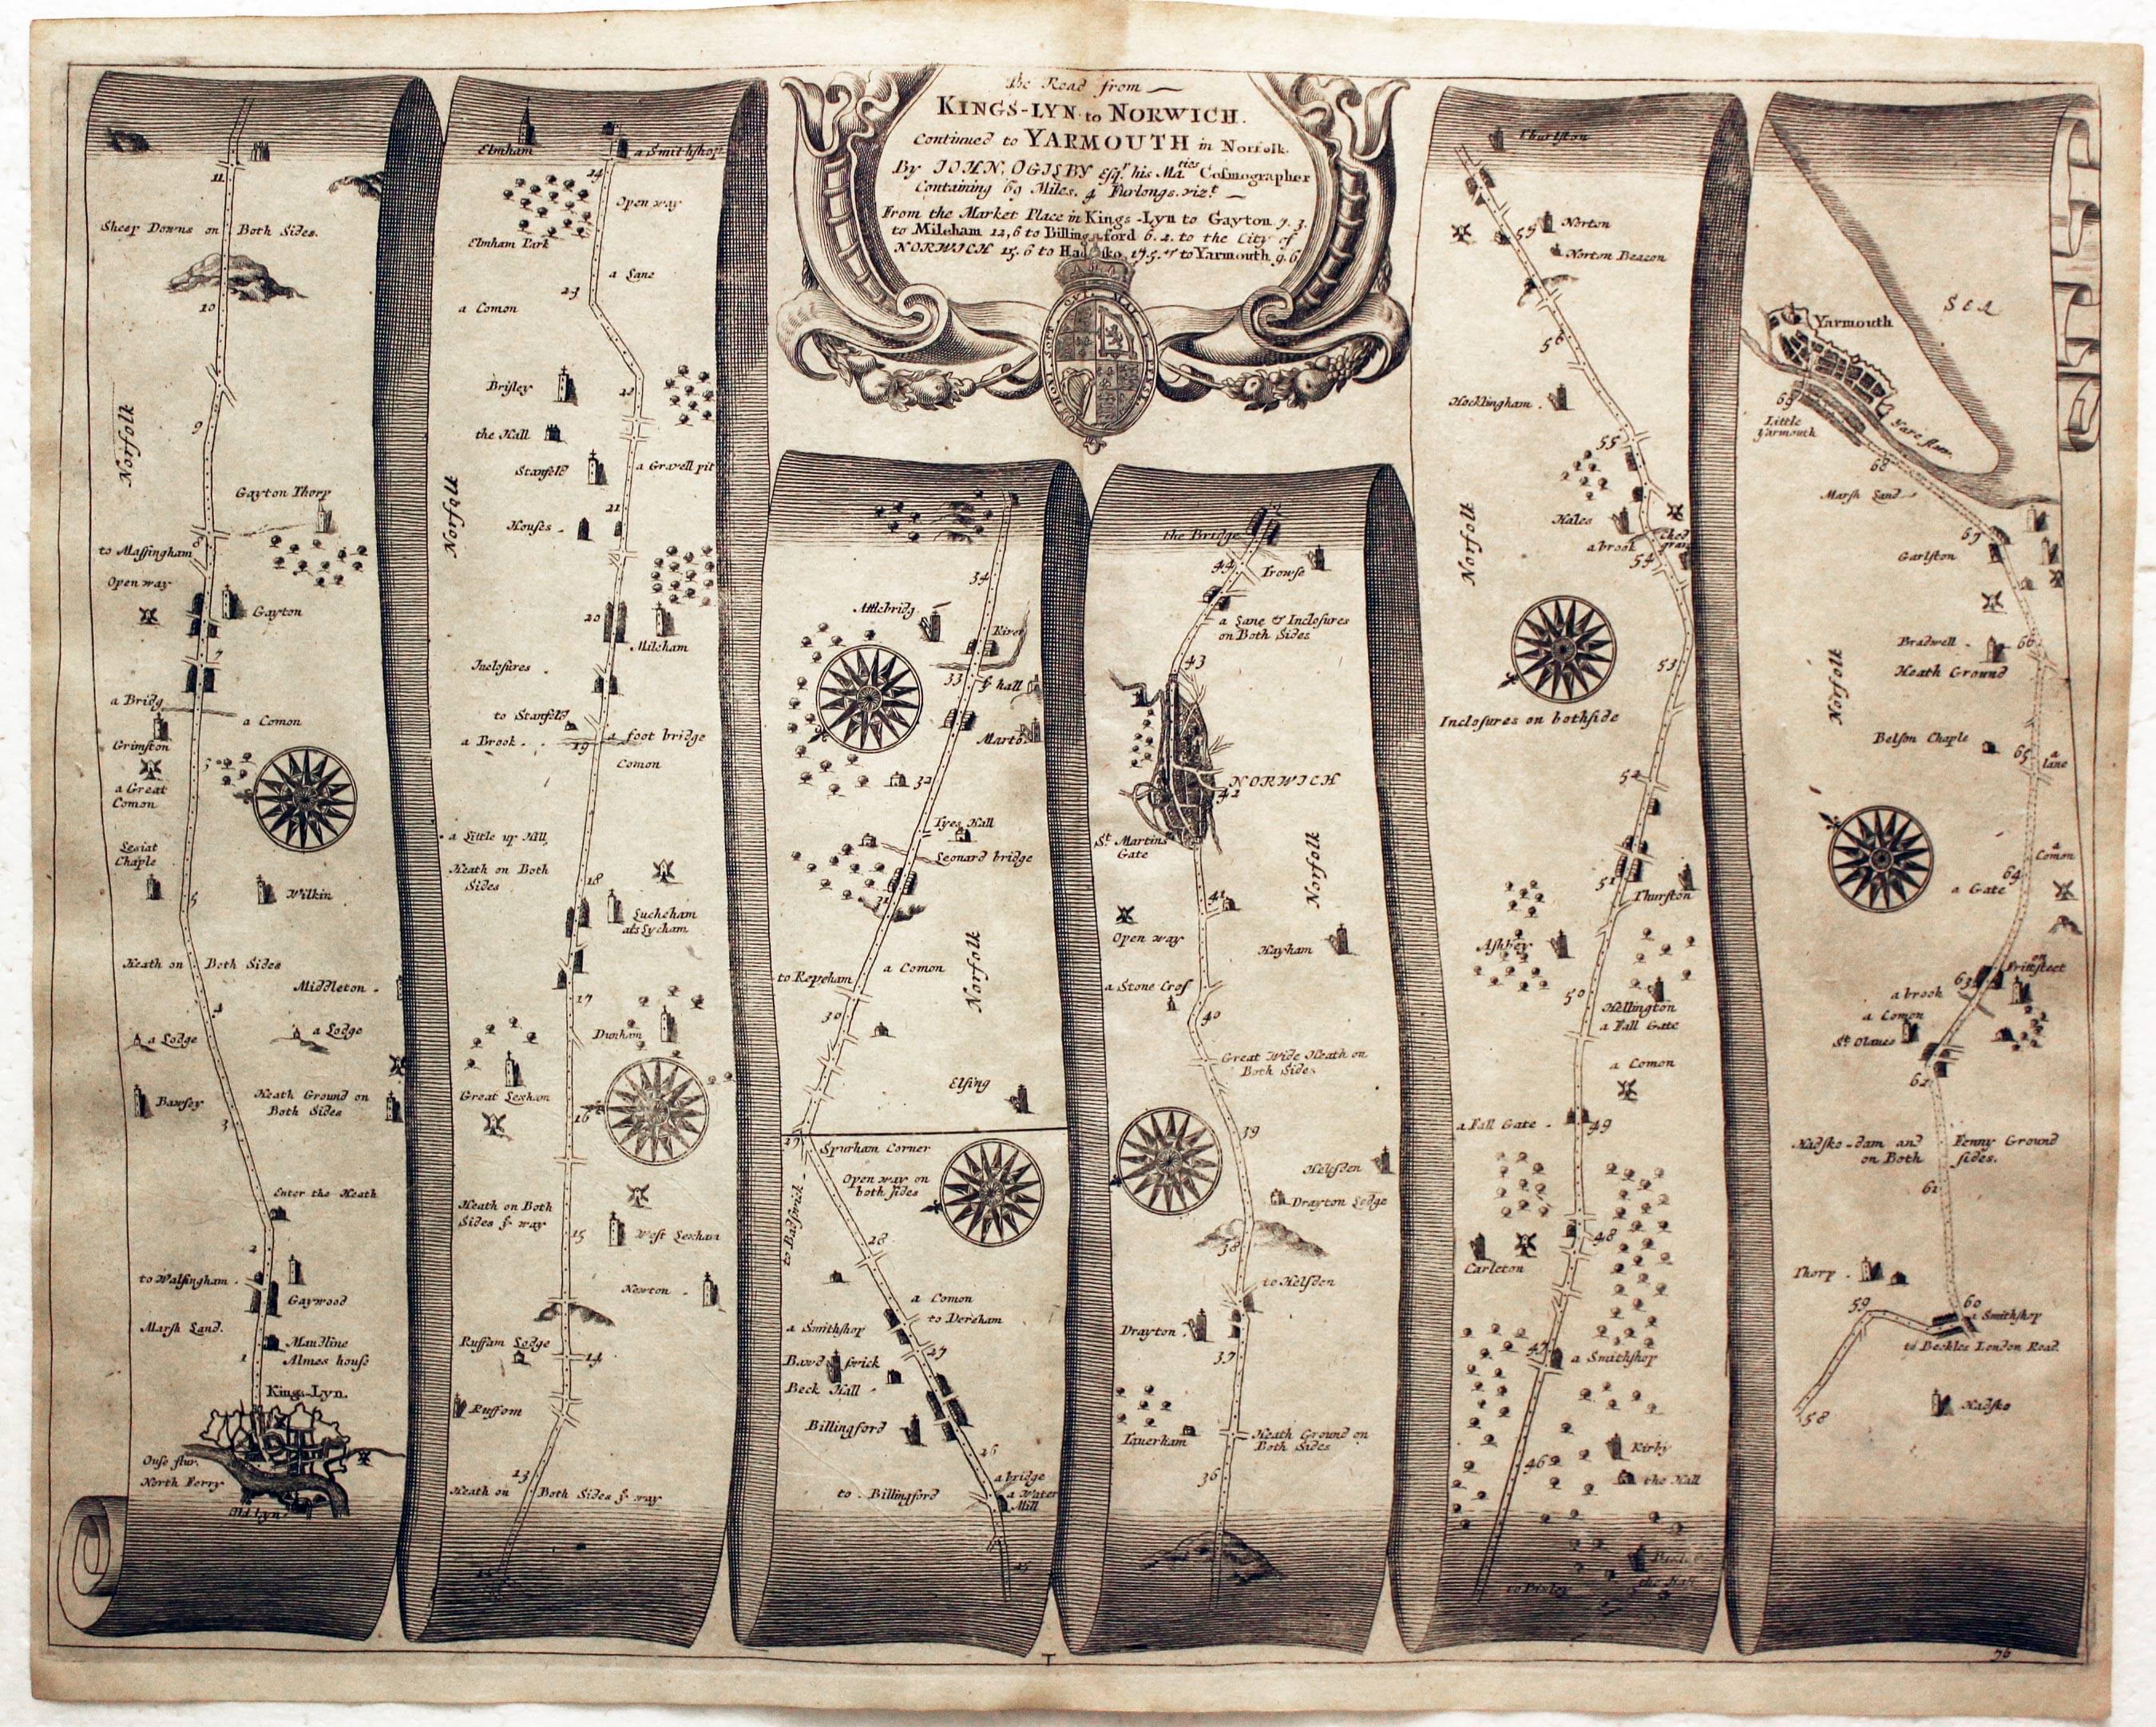 The Road from
KINGS-LYN to NORWICH.
Continued to YARMOUTH in Norfolk.
By IOHN, OGILBY Esqr. his Maties Cosmographer
Containing 69 Miles. 4 Furlongs. vizt
From the Market Place in Kings-Lyn to Gayton 7. 3.
to Mileham 12,6 to Billingsford 6. 2. to the City of
NORWICH 15.6 to Hadsko to Yarmouth 9.6
11
Sheep Downs on Both Sides.
10
Norfolk
9
Gayton Thorp
8
to Massingham
Open way
Gayton
7
a Bridg
a Comon
Grimston
a Great
Comon
Lesiat
Chaple
5
Wilkin
Heath on Both Sides
Middleton
4
a Lodge
a Lodge
Bawsey
Heath Ground on
Both Sides
3
Enter the Heath
2
to Walsingham
Gaywood
Marsh Land.
Maudline
Almes house
1
Kings-Lyn.
Ouse fluv.
North Ferry
Old Lyn
Elmham
a Smithshop
24
Open way
Elmham Park
a Lane
23
a Comon
Brisley
22
the Hall
Stanfeld
a Gravell pit
Norfolk
21
Houses
20
Mileham
Inclosures
to Stanfeld
a Brook
19
a foot bridge
Comon
a Little up Hill
Heath on Both
Sides
18
Lucheham
als Lycham
17
Dunham
Great Lexham
16
Heath on Both
Sides ye way
15
West Lexham
Newton
Ruffam Lodge
14
Ruffom
13
Heath on Both Sides ye way
34
Attlebridg
River
33
ye hall
32
Lyes Hall
Leonard bridge
31
to Repeham
a Comon
Norfolk
30
Elsing
29
Spurham Corner
Open way on
both sides
to Badswick
28
a Comon
a Smithshop
to Dereham
Bawdswick
27
Beck Hall
Billingford
26
a bridge
to Billingford
a Water
Mill
25
the Bridge
44
Trowse
a Lane & Inclosures
on Both Sides
43
NORWICH
42
St. Martins
Gate
Norfolk
41
Open way
Hayham
a Stone Cross
40
Great Wide Heath on
Both Sides
39
Helesden
Drayton Lodge
38
to Helsden
Drayton
37
Taverham
Heath Ground on
Both Sides
36
Thurlston
Norton
Norton Beacon
56
Hocklingham
55
Hales
a brook
54
Norfolk
53
Inclosures on bothside
52
51
Thurston
Ashbey
50
Hellington
a Fall Gate
a Comon
a Fall Gate
49
48
Carleton
47
a Smithshop
46
Kirby
the Hall
Sea
Yarmouth
69
Little
Yarmouth
Yare fluv.
68
Marsh Land
67
Garlston
Bradwell
66
Heath Ground
Norfolk
Belson Chaple
65
a
lane
a
Comon
64
a Gate
63
a brook
a Comon
St. Olaves
62
Hadsko-dam and Fenny Ground
on Both sides.
61
Thorp
59
60
a Smithshop
to Beckles London Road
58
Hadsko
76